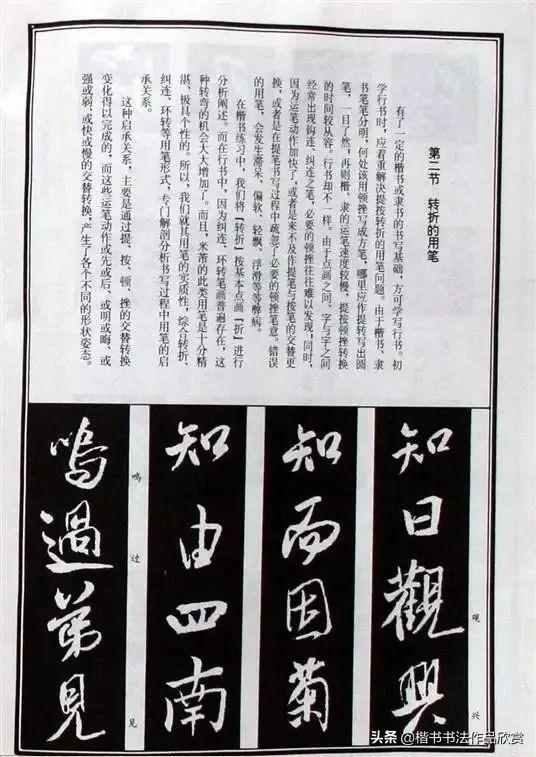 第二节 转折的用笔
有了一定的楷书或隶书的书写基础，方可学写行书。初
学行书时，应着重解决提按转折的用笔问题。由于楷书、隶
书笔笔分明，何处该用顿挫写成方笔，哪里应作提转写出圆
笔，一目了然，再则楷、隶的运笔速度较慢，提按顿挫转换
的时间较从容。行书却不一样。由于点画之间、字与字之间
经常出现钩连、纠连之笔，必要的顿挫往往难以发现，同时，
因为运笔动作加快了，或者是来不及作提笔与按笔的交替更
换，或者是在提笔书写过程中疏忽了必要的顿挫笔意。错误
的用笔，会发生滞呆、偏软、轻飘、浮滑等等弊病。
在楷书练习中，我们将「转折」按基本点画「折」进行
分析阐述。而在行书中，因为纠连、环转笔画普遍存在，这
种转弯的机会大大增加了。而且，米芾的此类用笔是十分精
湛、极具个性的。所以，我们就其用笔的实质性，综合转折、
纠连、环转等用笔形式，专门解剖分析书写过程中用笔的启
承关系。
这种启承关系，主要是通过提、按、顿、挫的交替转换
变化得以完成的，而这些运笔动作或先或后、或明或晦、或
强或弱、或快或慢的交替转换，产生了各个不同的形状姿态。
观 兴
知日觀興
知而因菊
知由四南
鸣 过 见
鳴過第見
头条 @楷书书法作品欣赏